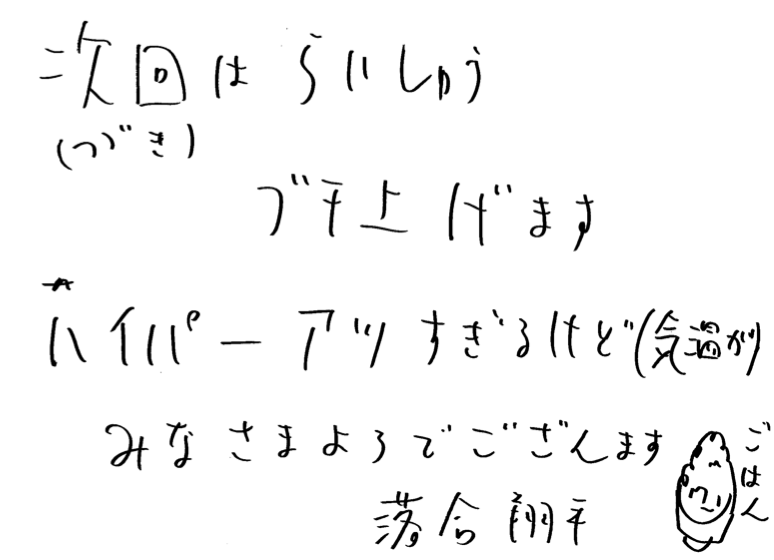 次回はらいしゅう
(つづき)
ブチ上げます
ハイパーアツすぎるけど(気温が)
みなさまよろでござんます
ごはん
落合翔平